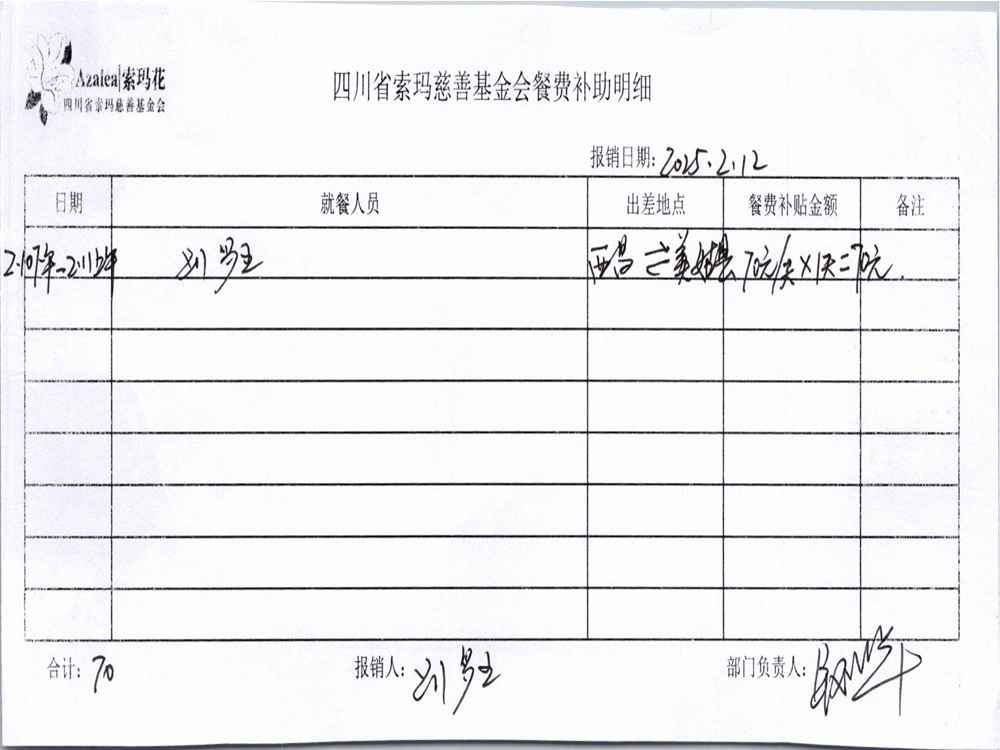 Azalea|索玛花
四川省索玛慈善基金会
四川省索玛慈善基金会餐费补助明细
报销日期: 2025.2.12
日期 就餐人员 出差地点 餐费补贴金额 备注
西昌 美姑县 70元/天×1天=70元.
合计: 70 报销人: 部门负责人: